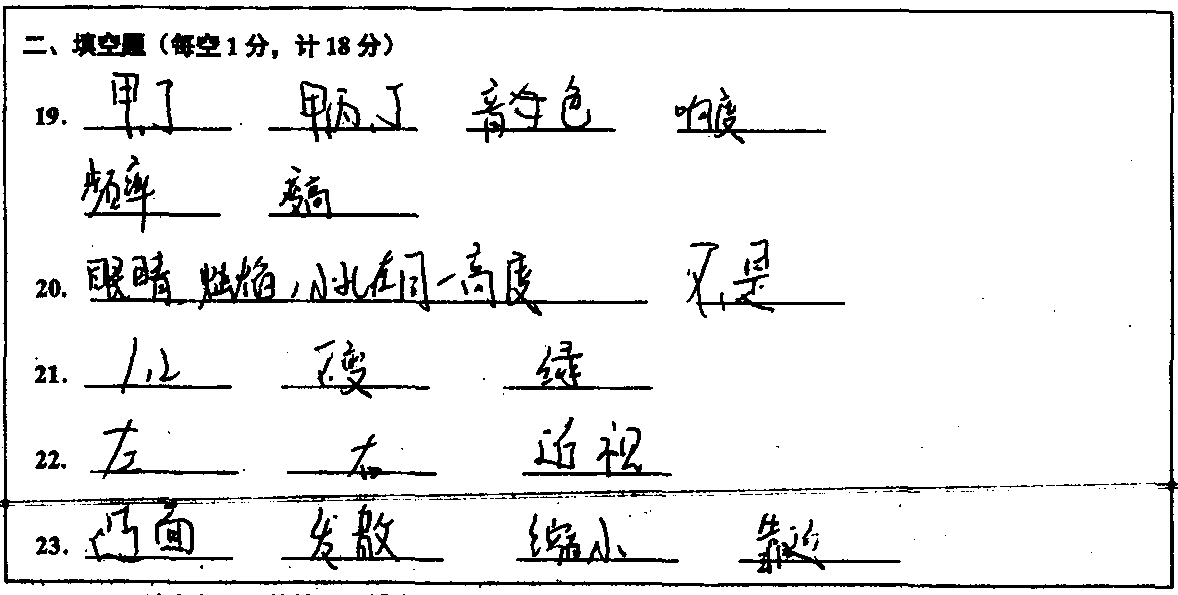 二、填空题（每空1分，计18分）
19. 甲、丁 甲、丙、丁 音色 响度
频率 高
20. 眼睛、烛焰，小孔在同一高度 不是
21. 1.2 不变 绿
22. 左 右 近视
23. 凸面 发散 缩小 靠近